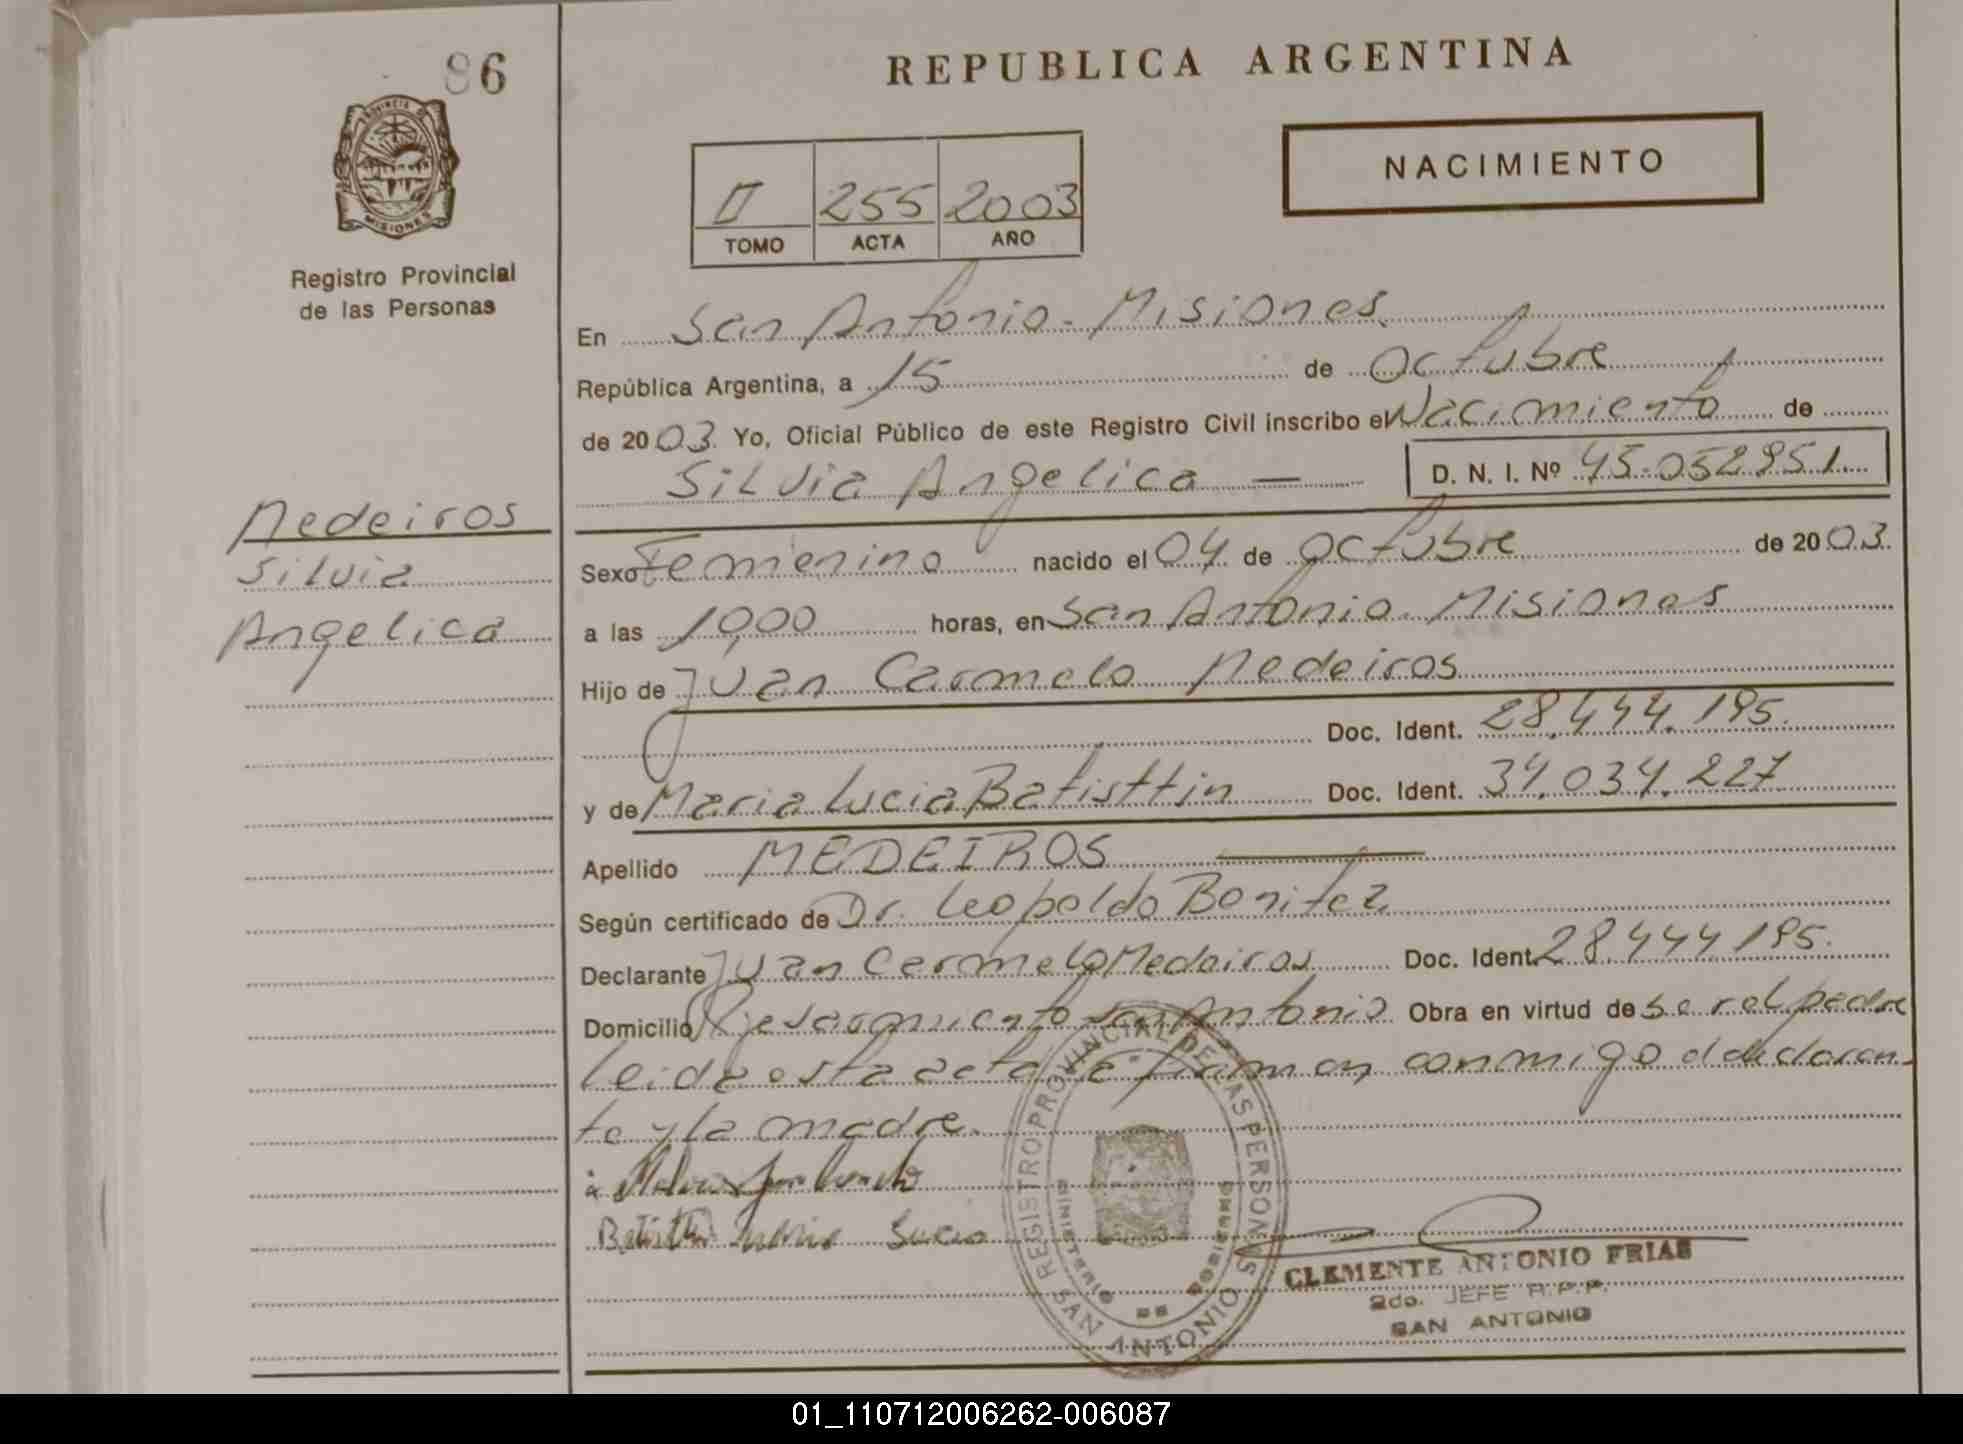 86
REPUBLICA ARGENTINA
NACIMIENTO
II 255 2003
TOMO ACTA AÑO
PROVINCIA DE MISIONES
Registro Provincial
de las Personas
En San Antonio - Misiones
República Argentina, a 15 de Octubre
de 2003. Yo, Oficial Público de este Registro Civil inscribo el Nacimiento de
Silvia Angelica — D. N. I. Nº 45.052.951
Medeiros
Silvia
Angelica
Sexo Femienino nacido el 04 de octubre de 2003.
a las 10,00 horas, en San Antonio - Misiones
Hijo de Juan Carmelo Medeiros
Doc. Ident. 28.444.195.
y de Maria Lucia Batisttin Doc. Ident. 34.034.227
Apellido MEDEIROS
Según certificado de Dr. Leopoldo Benitez
Declarante Juan Carmelo Medeiros Doc. Ident. 28.444.195.
Domicilio San Antonio Obra en virtud de ser el padre
leida esta acta la firman conmigo el declaran-
te y la madre.
Batisttin Lucia
REGISTRO PROVINCIAL DE LAS PERSONAS
SAN ANTONIO
MINISTERIO DE GOBIERNO
CLEMENTE ANTONIO FRIAS
2do. JEFE R.P.P.
SAN ANTONIO
01_110712006262-006087